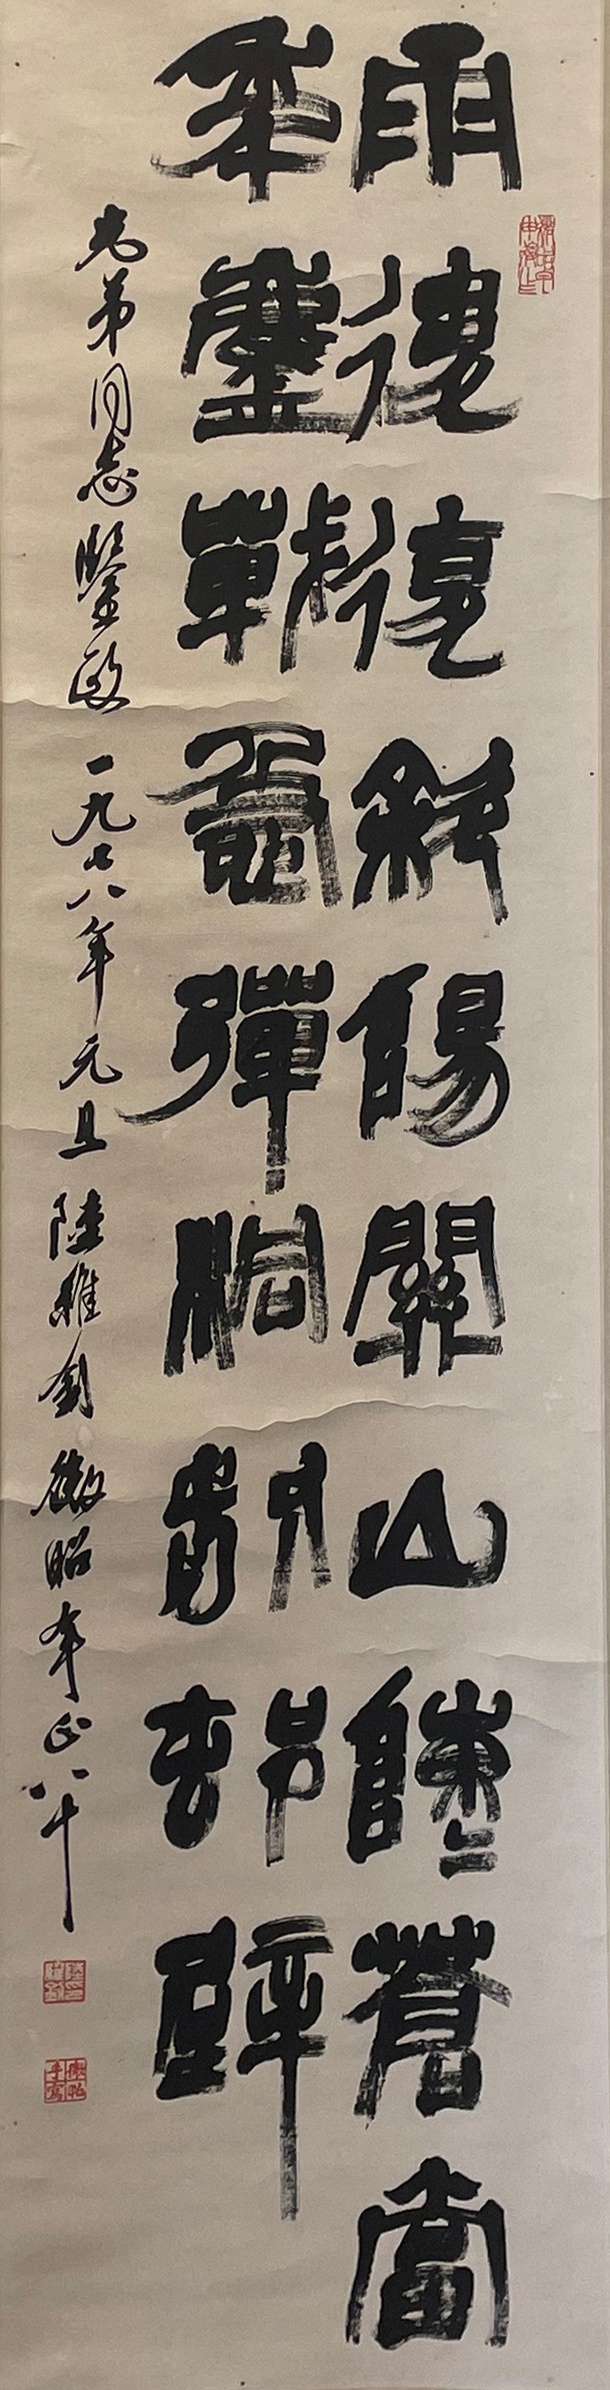 雨後復斜陽關山陣〻蒼當
年鏖戰急彈洞前邨壁
光弟同志鑒政 一九七八年元旦 陸維釗 微昭年正八十